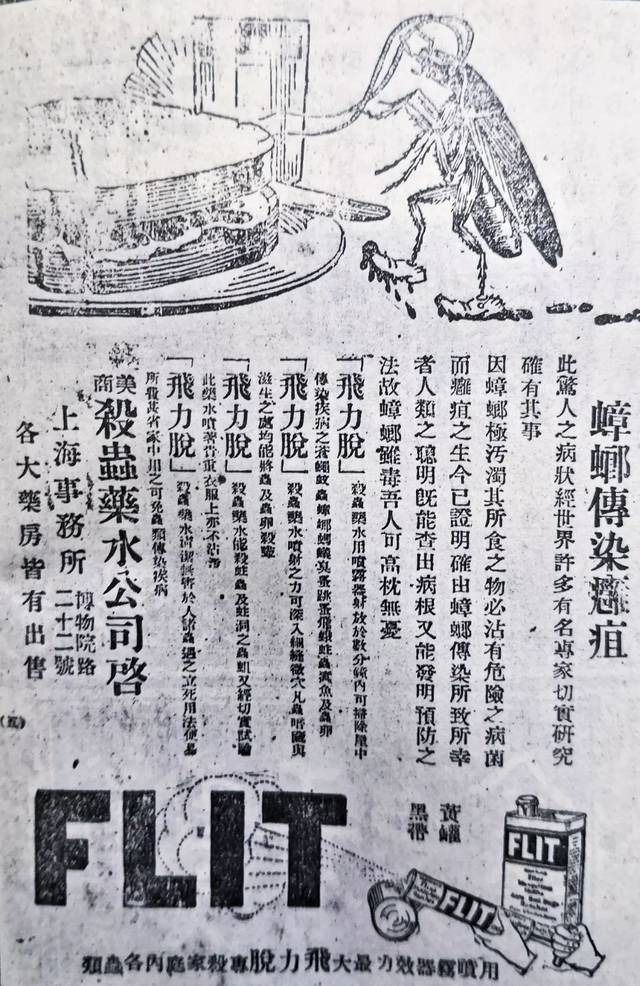 蟑螂傳染癰疽
此驚人之病狀經世界許多有名專家切實研究
確有其事
因蟑螂極汚濁其所食之物必沾有危險之病菌
而癰疽之生今已證明確由蟑螂傳染所致所幸
者人類之聰明旣能查出病根又能發明預防之
法故蟑螂雖毒吾人可高枕無憂
「飛力脫」殺蟲藥水用噴霧器射放於數分鐘內可掃除屋中
傳染疾病之蒼蠅蚊蟲蟑螂螞蟻臭蟲跳蚤飛蛾蛀蟲魚及蟲卵
「飛力脫」殺蟲藥水噴射之力可深入細縫微穴凡蟲暗匿與
滋生之處均能將蟲及蟲卵殺斃
「飛力脫」殺蟲藥水能殺蛀蟲及蛀洞之蟲蛆又經切實試驗
此藥水噴著貴重衣服上亦不沾汚
「飛力脫」殺蟲藥水清潔無害於人諸蟲遇之立死用法便易
所費甚省家中用之可免蟲類傳染疾病
美商
殺蟲藥水公司啓
上海事務所
博物院路
二十二號
各大藥房皆有出售
(五)
FLIT
黃罐
黑帶
FLIT
FLIT
用噴霧器效力最大飛力脫專殺家庭內各蟲類